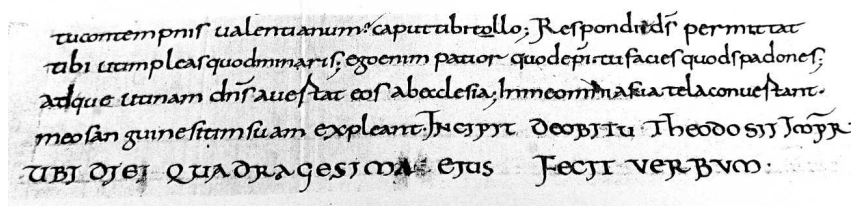 tu contempnis ualentianum? caput tibi tollo; Respondi ds̄ permittat
tibi ut impleas quod minaris; ego enim patior quod ep̄i tu facies quod spadones;
adque utinam dn̄s auertat eos ab ecclesia; In me omnia sua tela conuertant.
meo sanguine sitim suam expleant. INCIPIT DE OBITU THEODOSII IMP̄R
UBI DIEI QUADRAGESIMA EIUS FECIT VERBUM.